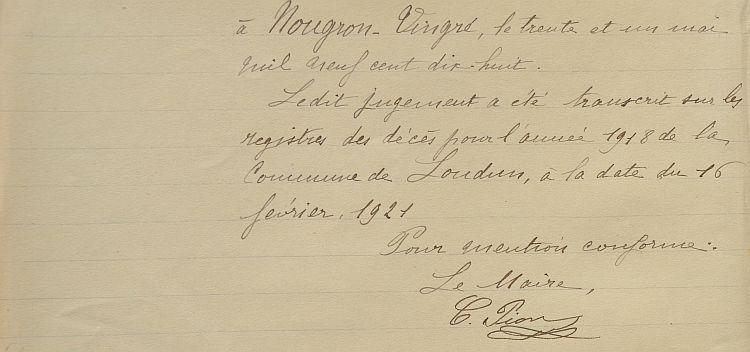 à Nougron-Vingré, le trente et un mai
mil neuf cent dix-huit.
Ledit jugement a été transcrit sur les
registres des décès pour l'année 1918 de la
Commune de Loudun, à la date du 16
février, 1921
Pour mention conforme:.
Le Maire,
C. Pion